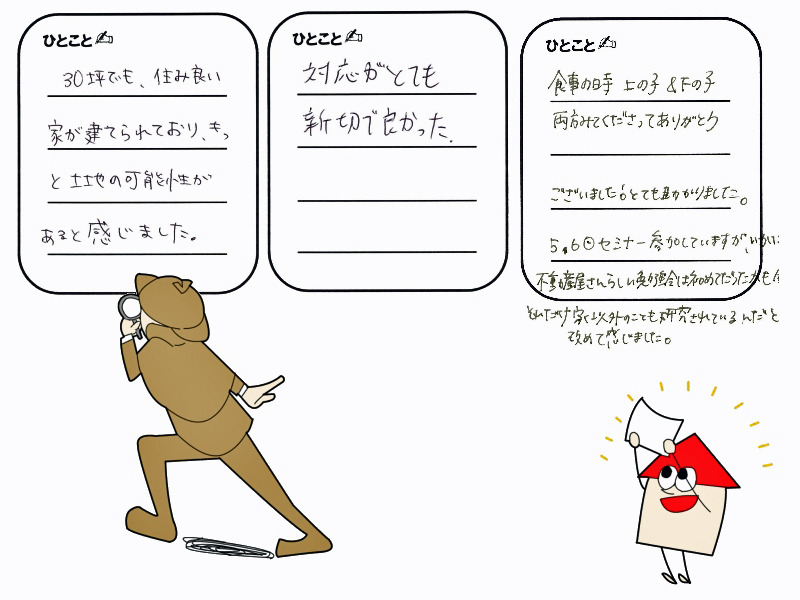 ひとこと
30坪でも、住み良い
家が建てられており、きっ
と土地の可能性が
あると感じました。
ひとこと
対応がとても
新切で良かった.
ひとこと
食事の時 上の子 &下の子
両方みてくださってありがとう
ございました!とても助かりました。
5,6回セミナー参加していますが、いかに
不動産屋さんらしい勉強会は初めてだったかも
どれだけ家以外のことも研究されているんだと
改めて感じました。